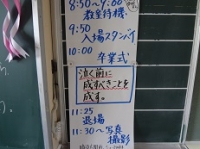 8:50～9:00
教室待機
9:50
入場スタンバイ
10:00
卒業式
泣く前に
成すべきことを
成す。
11:25
退場
11:30～写真
撮影